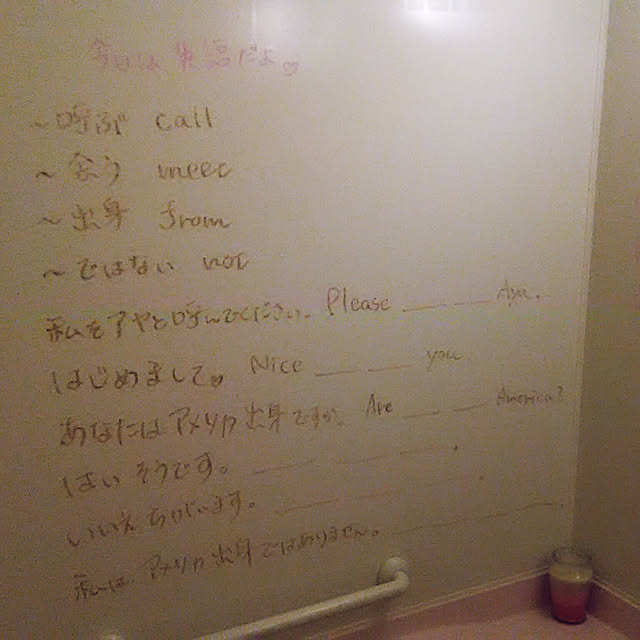 今日は英語だよ♡
~呼ぶ call
~会う meet
~出身 from
~ではない not
私をアヤと呼んでください。 Please ___ ___ Aya.
はじめまして。 Nice ___ ___ you
あなたはアメリカ出身ですか。 Are ___ ___ America?
はいそうです。 ___ ___ ___.
いいえちがいます。 ___ ___ ___.
私はアメリカ出身ではありません。 ___ ___ ___ ___